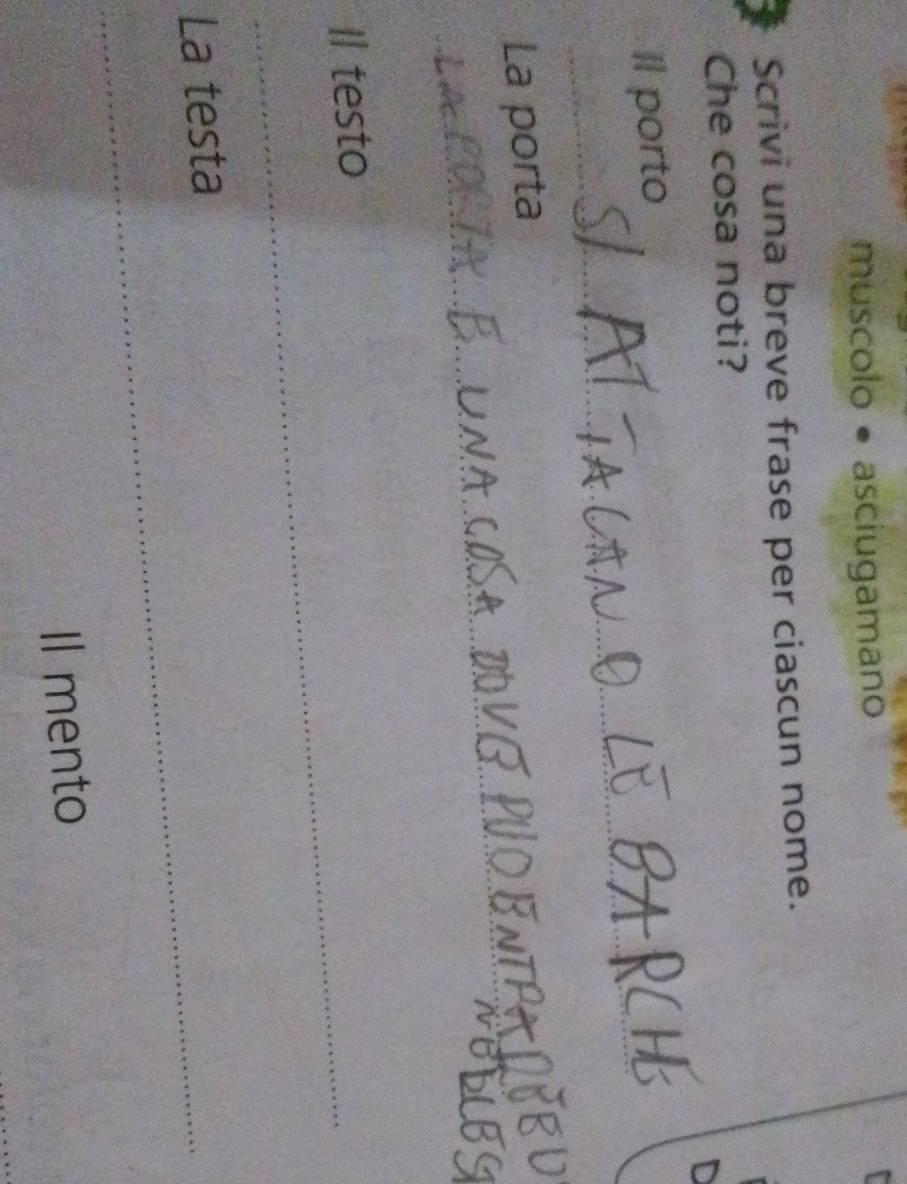 muscolo • asciugamano
Scrivi una breve frase per ciascun nome.
Che cosa noti?
Il porto
SI ATTACANO LE BARCHE
La porta
LA PORTA E UNA COSA DOVE PUOENTRA
Il testo
La testa
Il mento